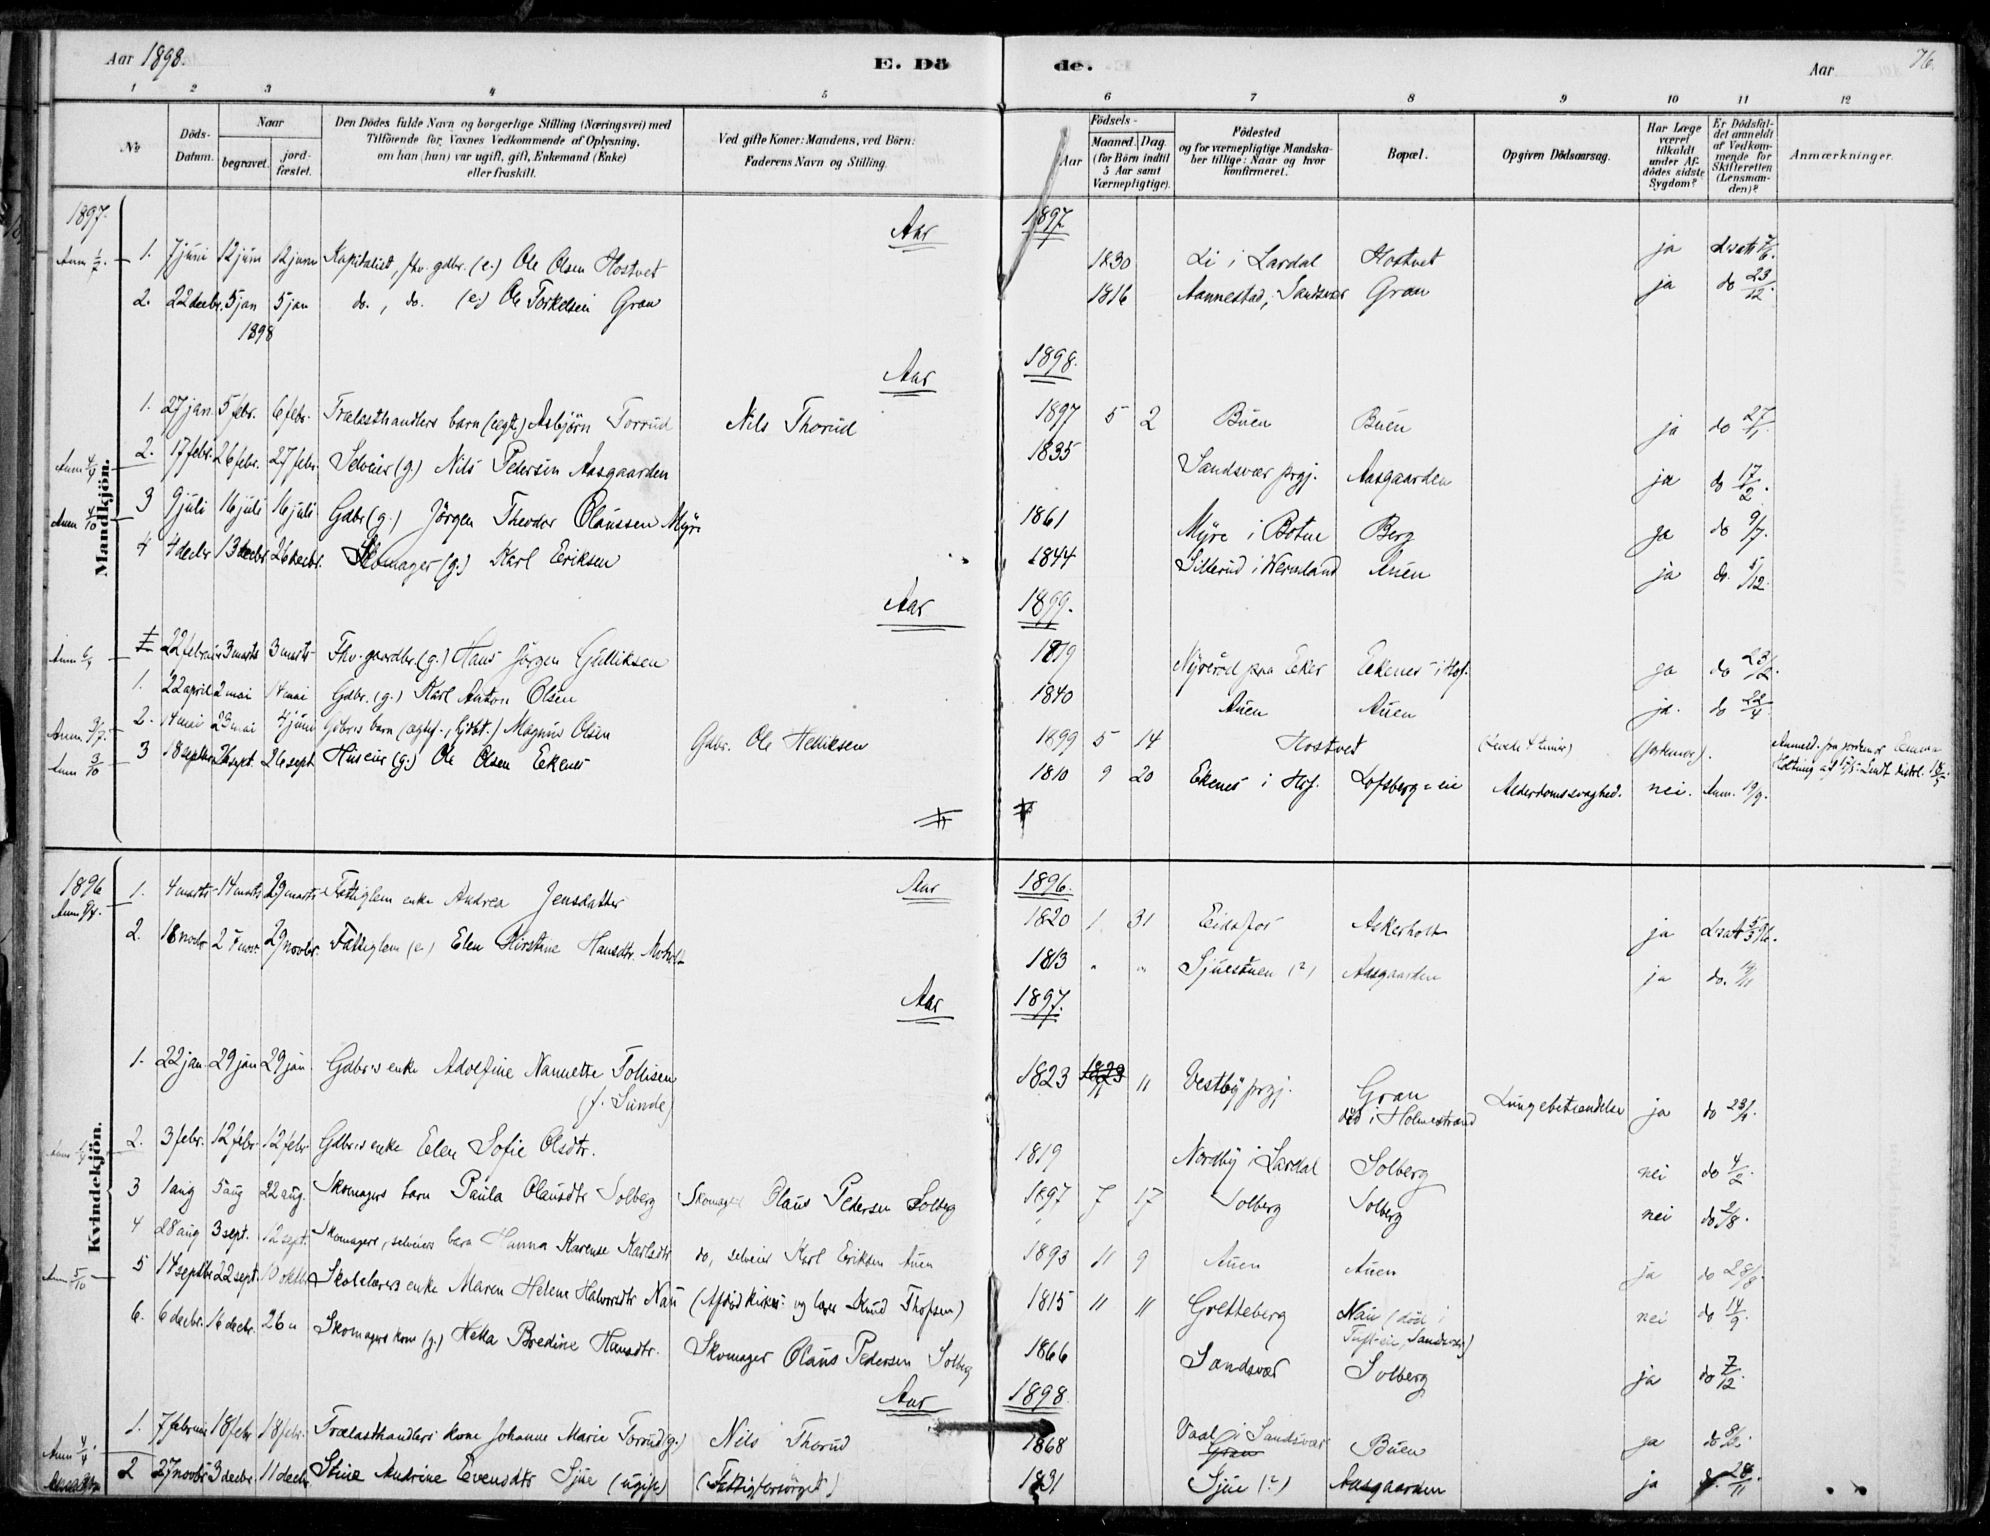 Aar 1898. E. Dö de. Aar 76.
1 2 3 4 5 6 7 8 9 10 11 12
No
Döds-Datum.
Naar
begravet.
jord-fæstet.
Den Dödes fulde Navn og borgerlige Stilling (Næringsvei) med
Tilföiende for Voxnes Vedkommende af Oplysning,
om han (hun) var ugift, gift, Enkemand (Enke)
eller fraskilt.
Ved gifte Koner: Mandens, ved Börn:
Faderens Navn og Stilling.
Födsels-
Aar
Maaned. Dag.
(for Börn indtil
5 Aar samt
Værnepligtige).
Födested
og for værnepligtige Mandska-
ber tillige: Naar og hvor
konfirmeret.
Bopæl.
Opgiven Dödsaarsag.
Har Læge
været
tilkaldt
under Af-
dödes sidste
Sygdom?
Er Dödsfal-
det anmeldt
af Vedkom-
mende for
Skifteretten
(Lensman-
den)?
Anmærkninger.
Mandkjön.
1897. Aar 1897
1. 7 juni 12 juni 12 juni Kapitalist, fhv. gdbr. (e.) Ole Olsen Hostvet 1830 Li i Lardal Hostvet ja
2. 22 decbr. 5 jan 5 jan do., do. (e.) Ole Torkelsen Gran 1816 Aannestad, Sandsvær Gran ja do 23/12.
1898
Aar 1898.
1. 27 jan 5 febr. 6 febr. Trælasthandlers barn (ægte) Asbjörn Torrud Nils Thorud 1897 5 2 Buen Buen ja do 27/1
Anm 4/4 2. 17 febr. 26 febr. 27 febr. Selveier (g.) Nils Pedersen Aasgaarden 1835 Sandsvær prgj. Aasgaarden ja do 17/2.
Anm 4/10 3 9 juli 16 juli 16 juli Gdbr (g.) Jörgen Theodor Olaussen Myre 1861 Myre i Botne Berg ja do 9/7.
4 4 decbr 13 decbr 26 decbr. Skomager (g.) Karl Eriksen 1844 Silterud i Wermland Auen ja do. 5/12.
Aar 1899.
22 februar 3 marts 3 marts Fhv. gaardbr. (g.) Hans Jörgen Gulliksen 1819 Nyeröd paa Eker Eekenes i Hof. ja do 23/2.
1. 22 april 2 mai 14 mai Gdbr. (g.) Karl Anton Olsen 1840 Auen Auen ja. do 22/4
2. 14 mai 23 mai 4 juni Gdbrs barn Magnus Olsen Gdbr. Ole Helliksen 1899 5 14 Hostvet (levede 4 timer) (jordmor).
Anm 3/10 3 18 septbr 26 sept. 26 sept. Huseier (g.) Ole Olsen Eekenes 1810 9 20 Ekenes i Hof. Lofsberg-eie Alderdomssvaghed. nei. Anm. 19/9.
Kvindekjön.
1896 Aar 1896.
1. 4 marts 14 marts 29 marts Fattiglem enke Andrea Jensdatter 1820 1 31 Eidsfos Askerholt ja
2. 18 novbr 27 nov. 29 novbr. Fattiglem (e) Elen Kirstine Hansdtr. Moholt 1813 " " Sjuestuen (?) Aasgaarden ja do. 19/11
Aar 1897.
1. 22 jan. 29 jan 29 jan. Gdbrs enke Adolfine Nannette Tollisen 1823 " Vestby prgj. Gran Lungebetændelse ja do 23/1.
(f. Sunde) död i Holmestrand
2. 3 febr. 12 febr. 12 febr Gdbrs enke Elen Sofie Olsdtr. 1819 Nordby i Lardal Solberg nei do 4/2
3 1 aug 5 aug 22 aug. Skomagers barn Paula Olausdtr Solberg Skomager Olaus Pedersen Solberg 1897 7 17 Solberg Solberg nei do 2/8.
4 28 aug 3 sept. 12 sept. Skomagers, selveiers barn Hanna Karense Karlsdtr do, selveier Karl Eriksen Auen 1893 11 9 Auen Auen ja do 28/8.
Anm 5/10 5 14 septbr 22 sept. 10 oktbr Skolelærers enke Maren Helene Halvorsdtr Nau (Afdöd kirkes. og lærer Knud Thofsen) 1815 11 11 Gretteberg Nau (död i nei do 14/9
6. 6 decbr. 16 decbr. 26 " Skomagers kone (g.) Hella Bredine Hansdtr. Skomager Olaus Pedersen Solberg 1866 Sandsvær Solberg ja do 7/12.
Aar 1898.
1. 7 februar 18 febr 18 febr. Trælasthandlers kone Johanne Marie Torrud (g.) Nils Thorud 1868 Vaal i Sandsvær Buen ja do 8/2.
Anm 4/4 2 27 novbr 3 decbr. 11 decbr. Stine Andrine Evensdtr Sjue (ugift) (Fattigforsörget) 1831 Sjue (?) Aasgaarden ja 28/11.